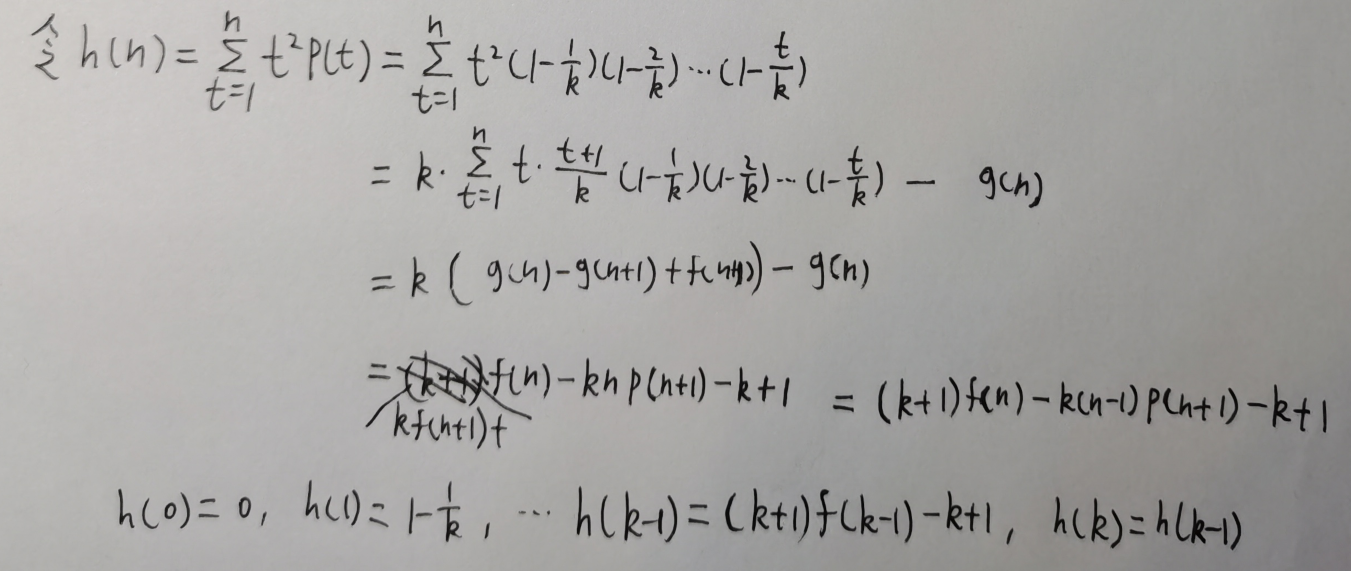 令 h(n) = ∑_{t=1}^{n} t²P(t) = ∑_{t=1}^{n} t²(1-1/k)(1-2/k)···(1-t/k)
= k· ∑_{t=1}^{n} t· (t+1)/k (1-1/k)(1-2/k)···(1-t/k) - g(n)
= k ( g(n)-g(n+1)+f(n+1)) - g(n)
= f(n) - kn p(n+1) - k+1 = (k+1)f(n) - k(n-1)p(n+1) - k+1
kf(n+1)+
h(0)=0, h(1)=1-1/k, ··· h(k-1)=(k+1)f(k-1)-k+1, h(k)=h(k-1)